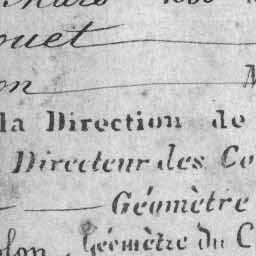 ouet
on M
la Direction de
Directeur des Co
Géomètre
olon, Géomètre du C